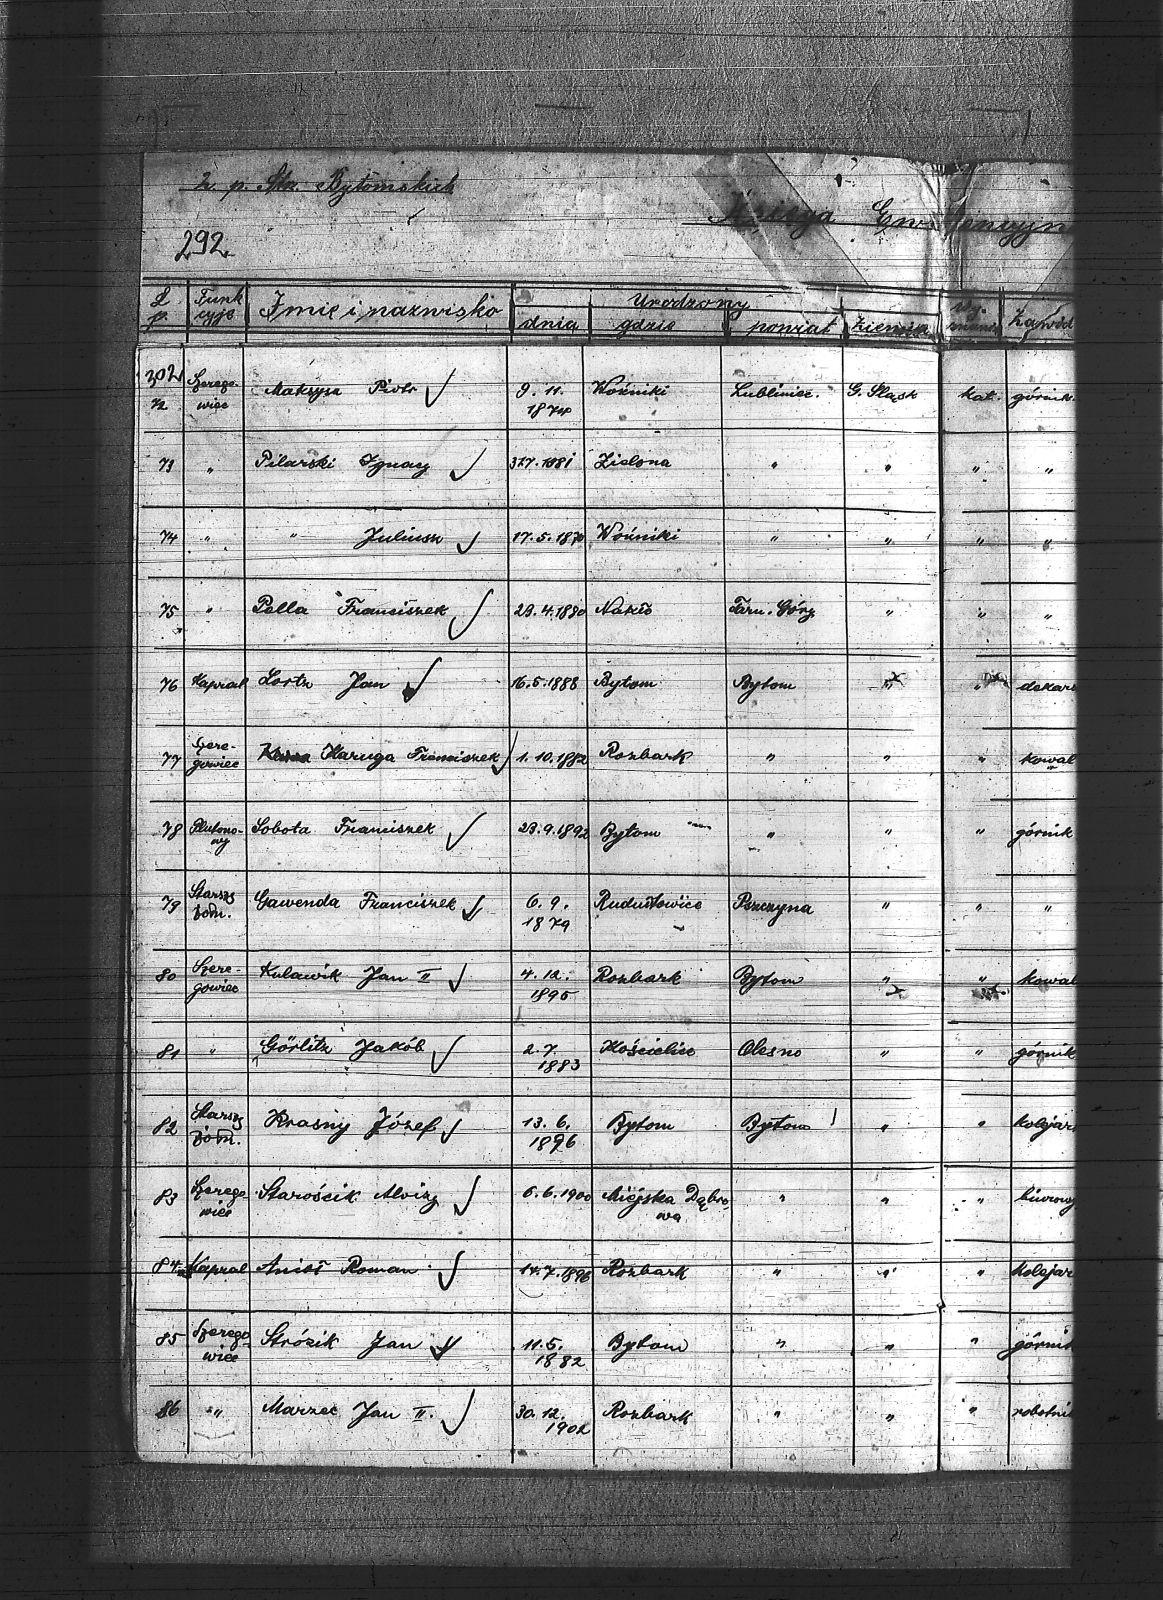 2. p. Strz. Bytomskich
Księga Ewidencyjn
292.
L. p. Funkcyje Imię i nazwisko Urodzony Wyznanie Zawód
dnia gdzie powiat ziemia
302
72 Szeregowiec Maksysz Piotr 9. 11. 1874 Woźniki Lubliniec. G. Śląsk kat. górnik.
73 " Pilarski Ignacy 31.7.1881 Zielona " " " "
74 " " Juliusz 17.5.1870 Woźniki " " " "
75 " Pella Franciszek 23.4.1880 Nakło Tarn. Góry " " "
76 Kapral Lortz Jan 16.5.1888 Bytom Bytom " " dekarz
77 Szeregowiec Karuga Franciszek 1.10.1882 Rozbark " " " kowal
78 Plutonowy Sobota Franciszek 23.9.1892 Bytom " " " górnik
79 Starszy żołn. Gawenda Franciszek 6.9. 1879 Rudułtowice Pszczyna " " "
80 Szeregowiec Kulawik Jan II 4.12. 1895 Rozbark Bytom " " kowal
81 " Görlitz Jakób 2.7. 1883 Kościelice Olesno " " górnik
82 Starszy żołn. Krasny Józef 13.6. 1896 Bytom Bytom " " kolejarz
83 Szeregowiec Starościk Alojzy 6.6.1900 Miejska Dąbrowa " " " biurowy
84 Kapral Anioł Roman 14.7.1896 Rozbark " " " kolejar
85 Szeregowiec Strózik Jan 11.5. 1882 Bytom " " " górnik
86 " Marzec Jan II. 30.12. 1902 Rozbark " " " robotni